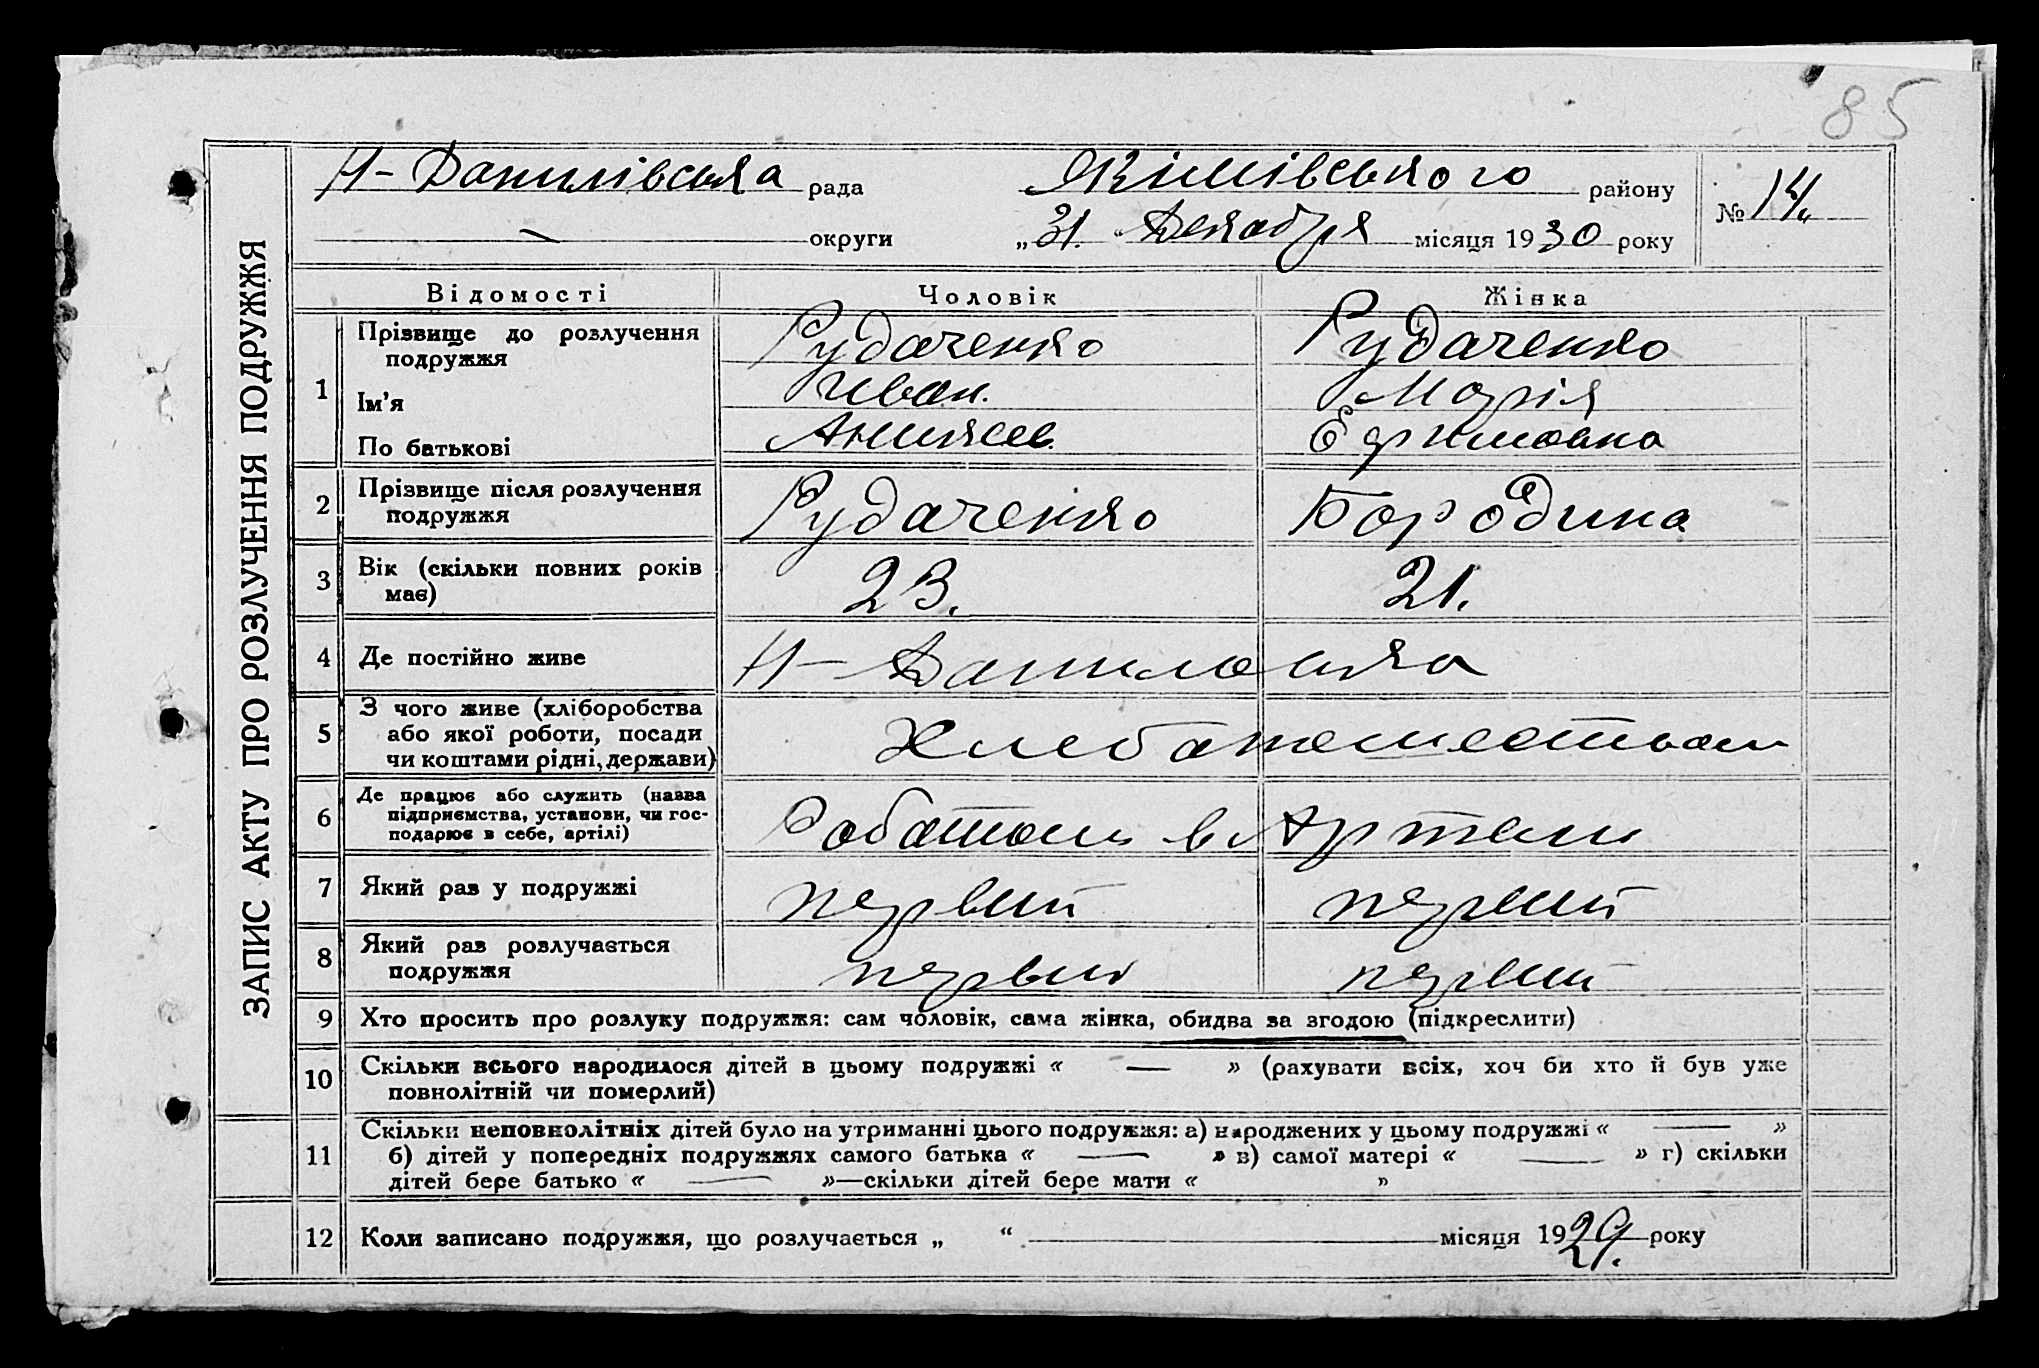 85
ЗАПИС АКТУ ПРО РОЗЛУЧЕННЯ ПОДРУЖЖЯ
Н-Данилівська рада Якімівського району № 14.
— округи „31.“ Декабря місяця 1930 року
Відомості Чоловік Жінка
1 Прізвище до розлучення подружжя Рудаченко Рудаченко
Ім'я Иван. Марія
По батькові Ефимовна
2 Прізвище після розлучення подружжя Рудаченко Бородина
3 Вік (скільки повних років має) 23. 21.
4 Де постійно живе Н-Даниловка
5 З чого живе (хліборобства
або якої роботи, посади
чи коштами рідні, держави)
6 Де працює або служить (назва
підприємства, установи, чи гос-
подарює в себе, артілі) в Артели
7 Який раз у подружжі первий первий
8 Який раз розлучається
подружжя первий первий
9 Хто просить про розлуку подружжя: сам чоловік, сама жінка, обидва за згодою (підкреслити)
10 Скільки всього народилося дітей в цьому подружжі « — » (рахувати всіх, хоч би хто й був уже
повнолітній чи померлий)
11 Скільки неповнолітніх дітей було на утриманні цього подружжя: а) народжених у цьому подружжі « — »
б) дітей у попередніх подружжях самого батька « — » в) самої матері « — » г) скільки
дітей бере батько « — »—скільки дітей бере мати « »
12 Коли записано подружжя, що розлучається „ “ місяця 1929. року